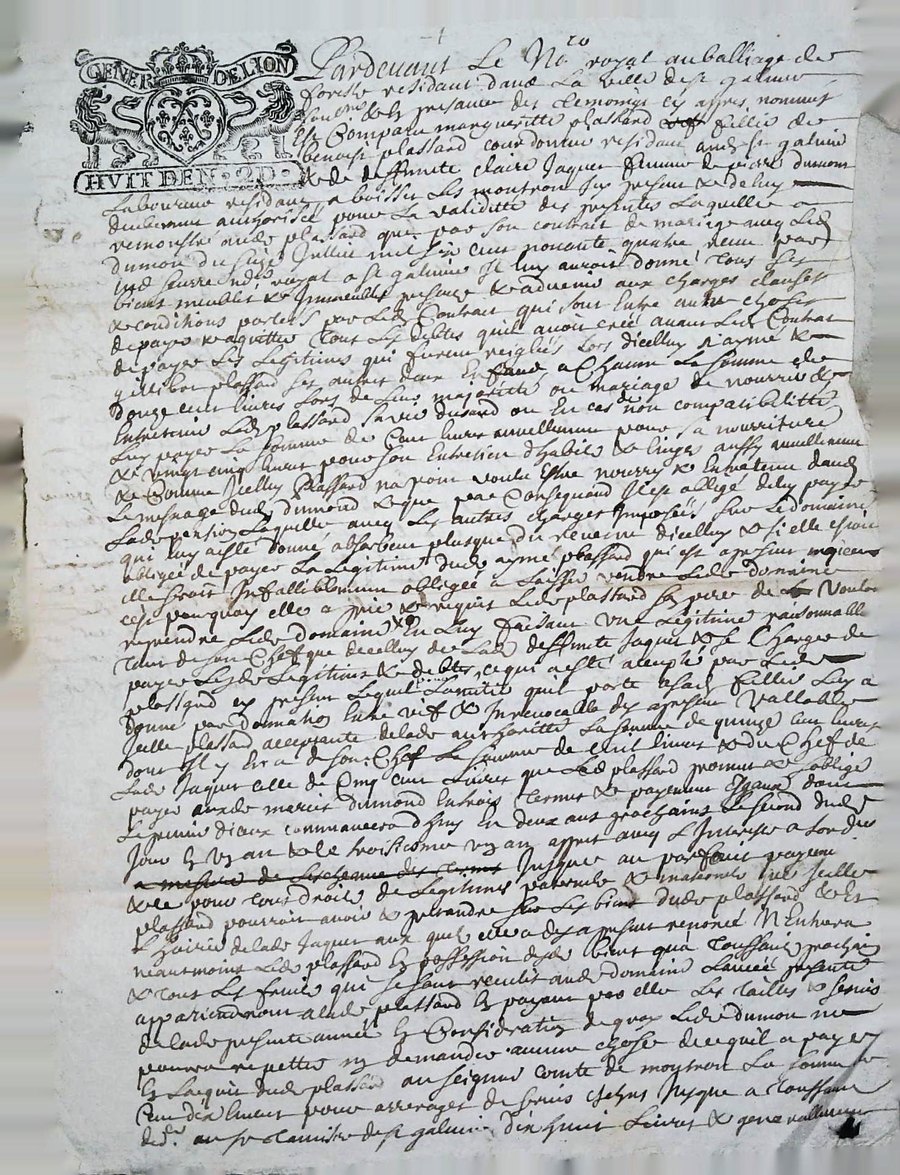 GENER DE LION
HVIT DEN · 2D ·
Pardevant Le No re royal au balliage de
forest residant dans La ville de st galmier
soub né & En presance des temoings cy apres nommés
Est Comparu margueritte plassard fillie de
benoist plassard cordonnier residant aud st galmier
& de deffuncte claire Jaquet femme de pierre dumont
Laboureur residant a boisset Les montrond Icy present & de luy
duement authorisée pour La validitté des presentes Laquellie a
remonstré aud plassard que par son contrat de mariage avec Led
dumon du Juillet mil six cen nonante quatre receu par
royal a st galmier Il luy auroit donné tous ses
biens meubles & Immeubles presents & advenir aux charges clauses
& conditions portées par Led Contrat qui sont Entre autre choses
de payer & aquitter tous Les debtes quil avoit créé avant Led Contrat
de payer Les Legitimes qui furent reiglées Lors dicelluy a aymé &
plassard ses autres deux Enfants a Chacun La somme de
douze cent livres Lors de Leur majoritté ou mariage de nourrir &
Entretenir Led plassard sa vie durand ou En cas de non compatibillitté
Luy payer La somme de Cent livres annuellement pour sa nourriture
& vingt cinq livres pour son Entretien dhabits & linges aussy annuellement
& Comme Icelluy plassard na point voulu Estre nourry & Entretenu dans
Le mesnage dud dumond & que par Consequand Il est obligé de luy payer
Lade pension Laquelle avec Les autres charges Imposées sur Le domaine
qui luy a esté donné absorbent plus que du revenu dicelluy & si elle estoit
obligée de payer La Legitime dud aymé plassard qui est a present majeur
elle seroit Infalliblement obligée a Laisser vendre Led domaine
cest pourquoy elle a prié & requit Led plassard son pere de Vouloir
reprendre Led domaine En Luy faisant une Legitime raisonnable
tant de son Chef que de celluy de Lad deffuncte Jaquet & se Charger de
payer Lesd Legitimes & debtes, ce qui a esté accepté par Led
plassard cy present Lequel Lamitié quil porte a sad fillie Luy a
donné par donation Entre vifs & Irrevocable des apresent Vallable
Jcelle plassard acceptante de lade authoritté La somme de quinze cen livres
dont Il y En a de son Chef La somme de mil livres & du Chef de
Lade Jaquet celle de Cinq cens Livres que Led plassard promet & soblige
payer aud mariés dumond En trois termes & payement Esgaux dont
Le premier diceux commancera dhuy En deux ans prochains Le second dud
Jour En un an & Le troisieme un an apres avec L Interestz a son dus
a mesure de Lescheance des termes Jusques au parfait payement
& ce pour tous droits de Legitimes paternels & maternels que Jcelle
plassard pourroit avoir & pretandre sur Les biens dud plassard & En
L hoirie de lade Jaquet aux quels elle a des apresent renoncé N Entrera
neantmoins Led plassard En possession desd biens qua toussaint prochain
& tous Les fruits qui se sont receulit aud domaine Lannée presente
appartiendront aud plassard En payant par elle Les tailles & servis
de lade presente année En Consideration de quoy Led dumon ne
pourra repetter ny demander aucune chose de ce quil a payé
En Lacquit dud plassard au seigneur comte de montrond La somme de
Cen dix livres pour arrerages de servis eschus Jusque a toussaint
der. au sr de st galmier dix huit Livres & generallement